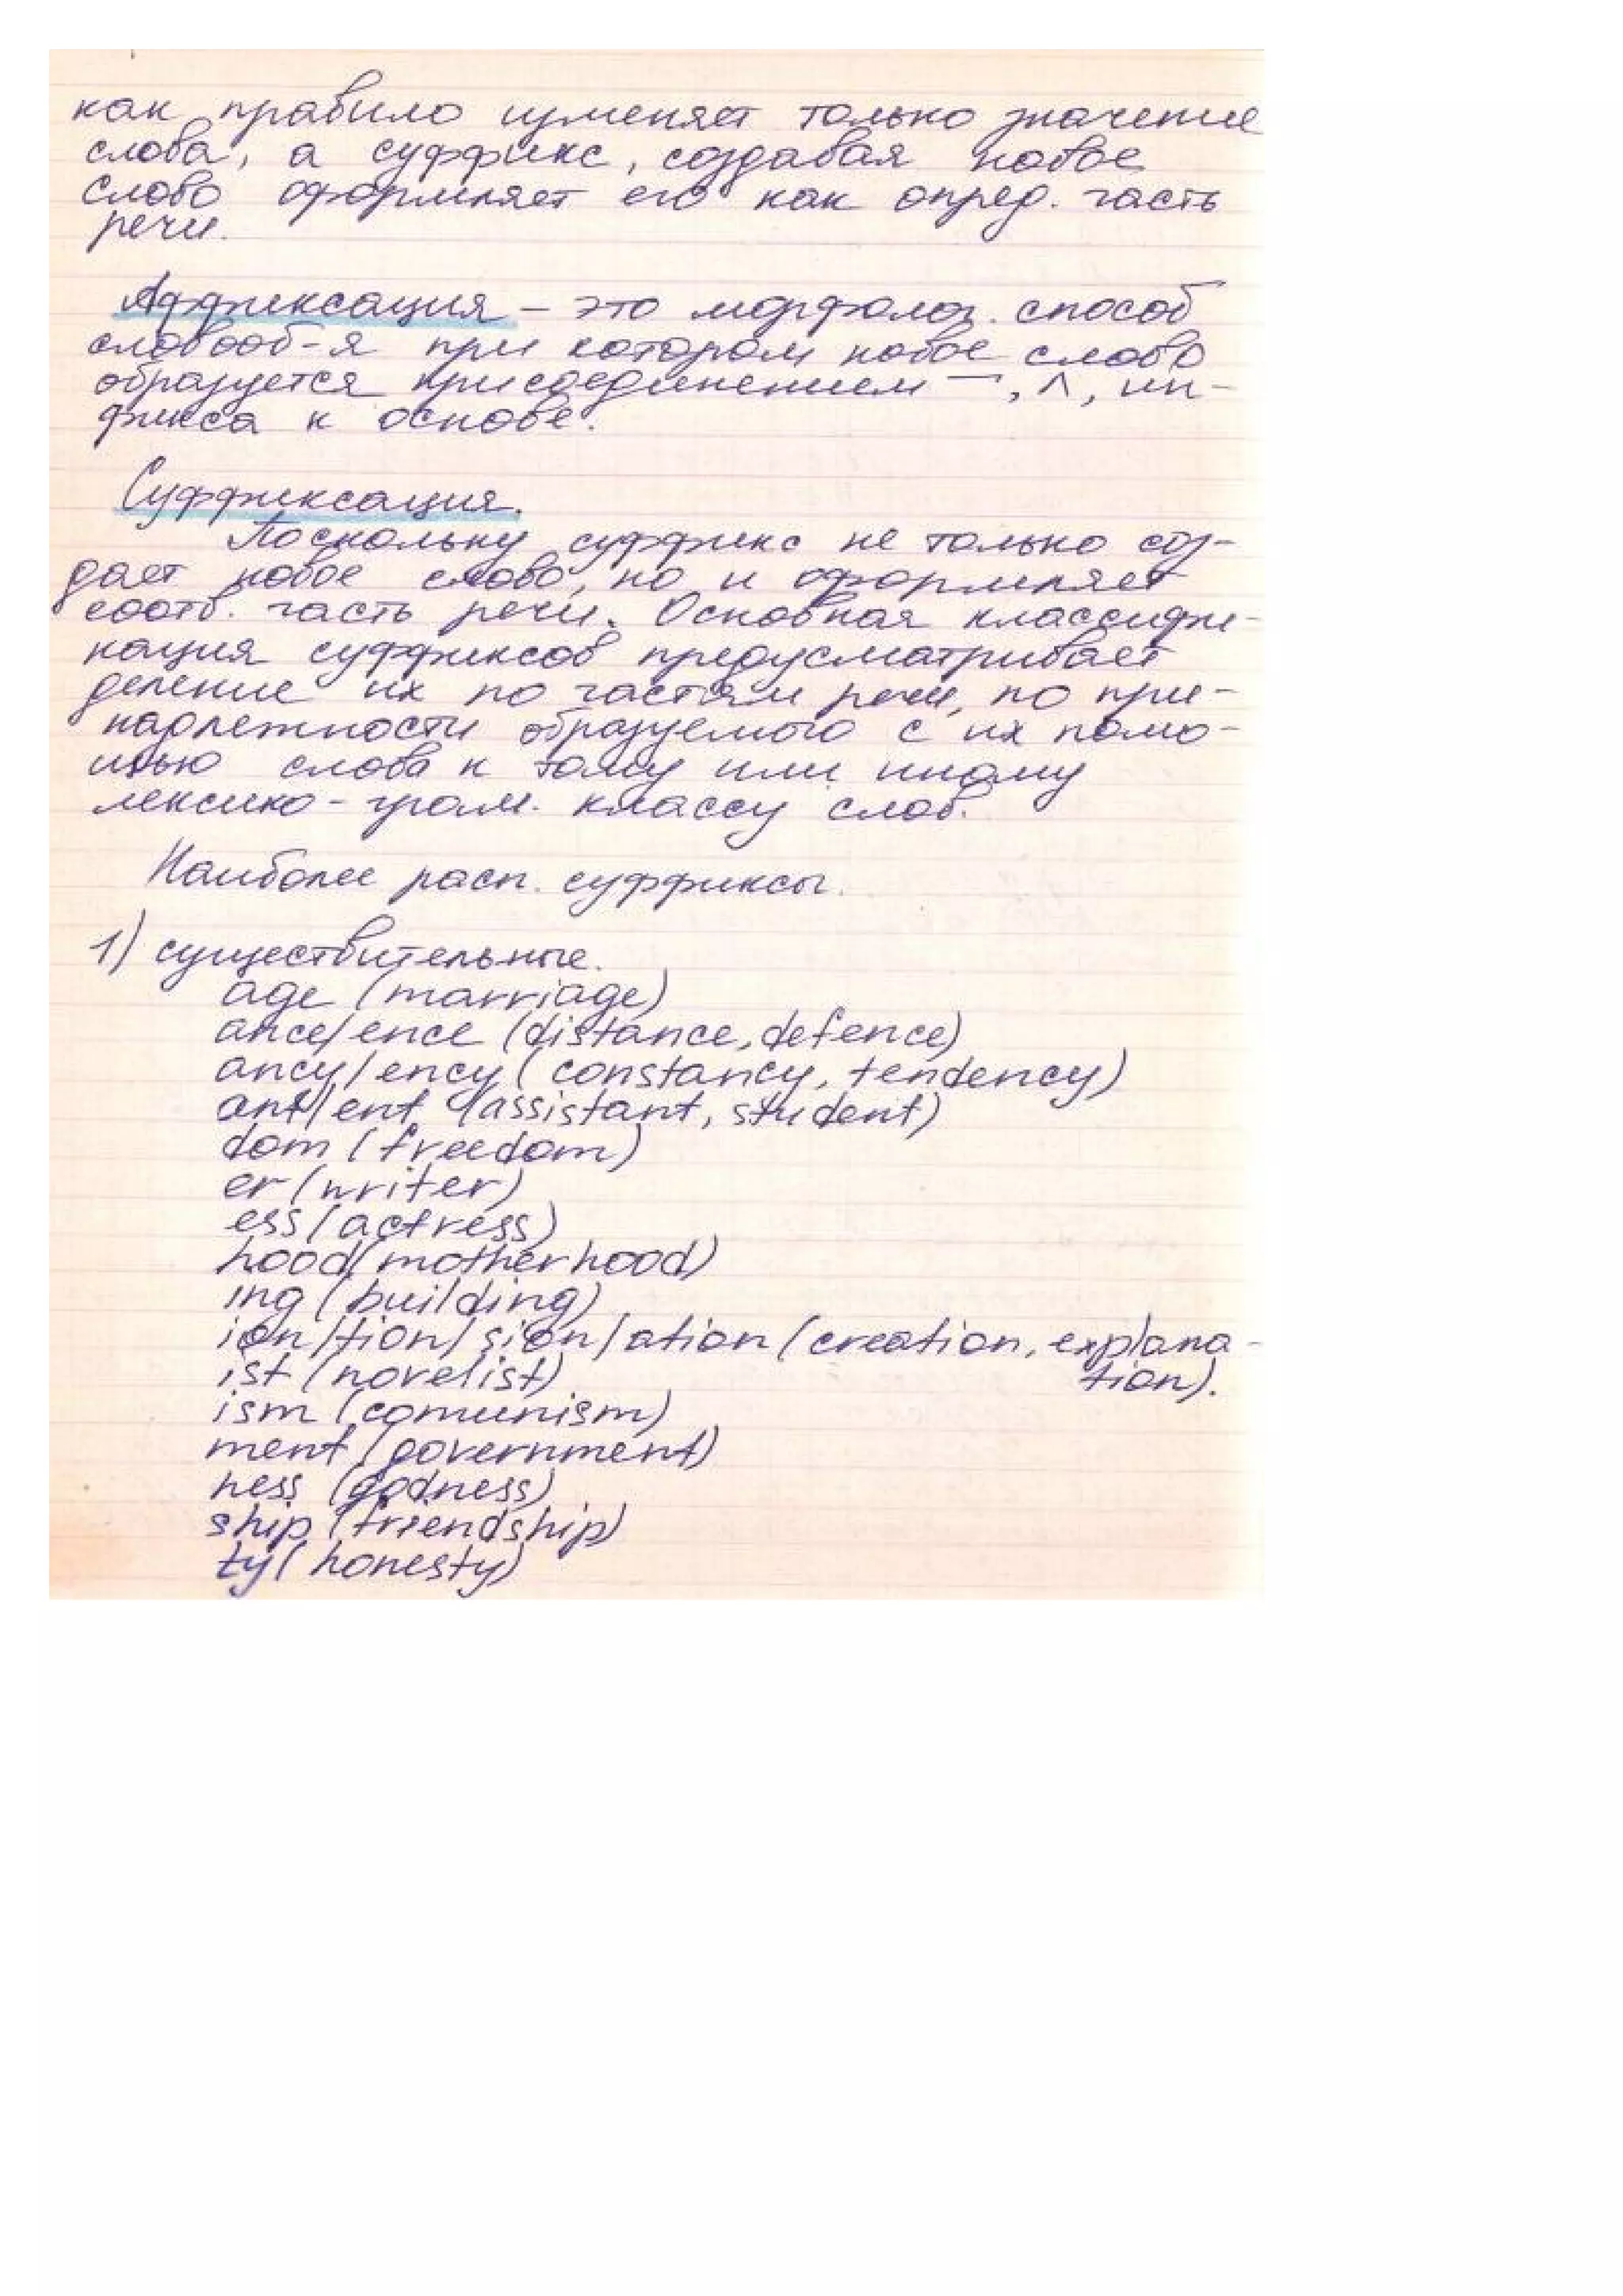 как правило изменяет только значение
слова, а суффикс, создавая новое
слово оформляет его как опред. часть
речи.
Аффиксация – это морфолог. способ
словооб-я при котором новое слово
образуется присоединением ¬, ^, ин-
фикса к основе.
Суффиксация.
Поскольку суффикс не только соз-
дает новое слово, но и оформляет
соотв. часть речи. Основная классифи-
кация суффиксов предусматривает
деление их по частям речи, по при-
надлежности образуемого с их помо-
щью слова к тому или иному
лексико-грам. классу слов.
Наиболее расп. суффиксы.
1) существительные.
age (marriage)
ance/ence (distance, defence)
ancy/ency (constancy, tendency)
ant/ent (assistant, student)
dom (freedom)
er (writer)
ess (actress)
hood (motherhood)
ing (building)
ion/tion/sion/ation (creation, explana-
tion).
ist (novelist)
ism (comunism)
ment (government)
ness (godness)
ship (friendship)
ty (honesty)